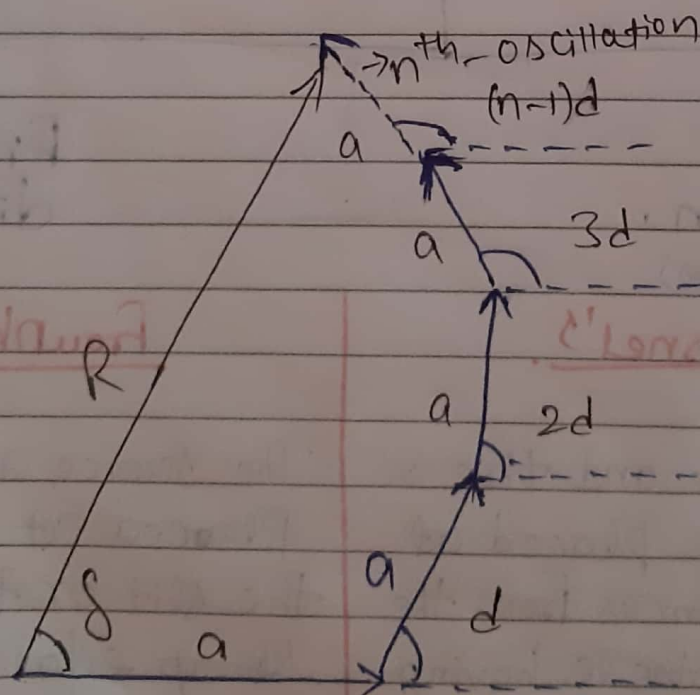 →nth oscillation
(n-1)d
a
3d
a
R
a
2d
a
d
δ
a